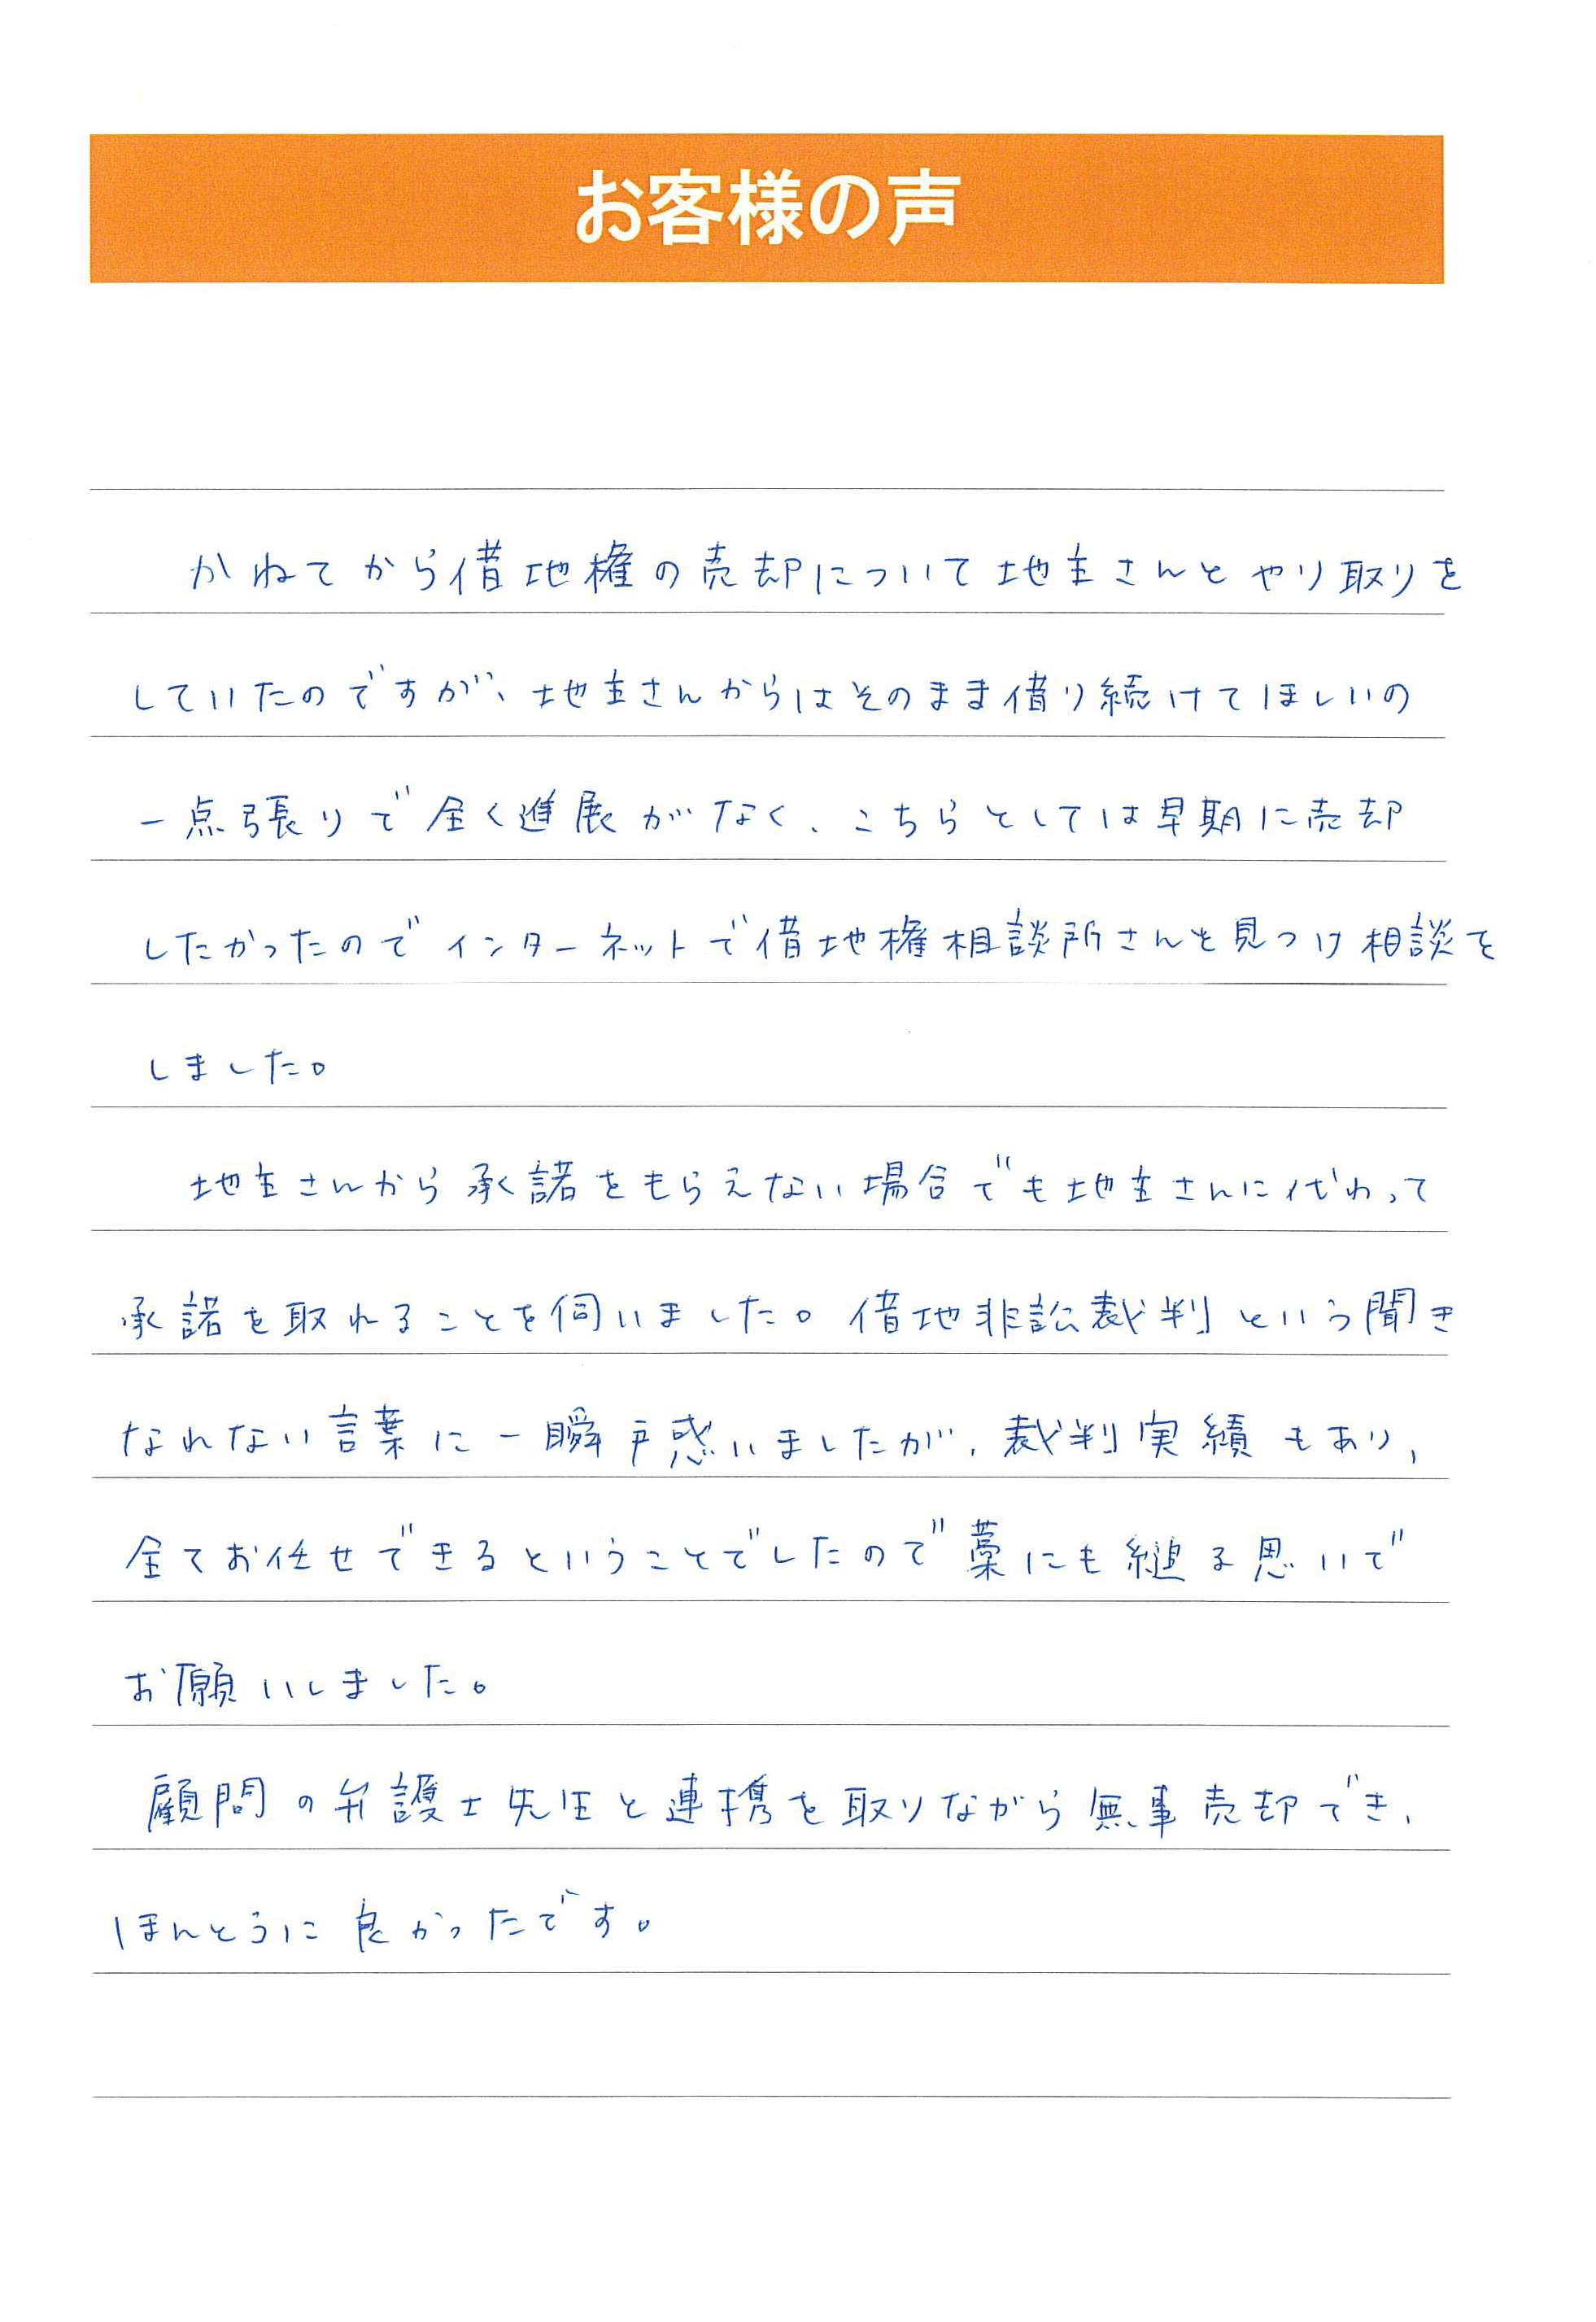 お客様の声
かねてから借地権の売却について地主さんとやり取りを
していたのですが、地主さんからはそのまま借り続けてほしいの
一点張りで全く進展がなく、こちらとしては早期に売却
したかったのでインターネットで借地権相談所さんを見つけ相談を
しました。
地主さんから承諾をもらえない場合でも地主さんに代わって
承諾を取れることを伺いました。借地非訟裁判という聞き
なれない言葉に一瞬戸惑いましたが、裁判実績もあり、
全てお任せできるということでしたので藁にも縋る思いで
お願いしました。
顧問の弁護士先生と連携を取りながら無事売却でき、
ほんとうに良かったです。